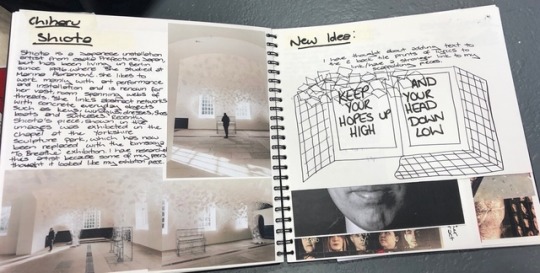 Chiharu
Shiota
Shiota is a Japanese installation
artist from Osaka Prefecture, Japan,
but has been living in Berlin
since 1996. Where she studied at
Marina Abramović. She likes to
work mainly with art performance
and installation and is renown for
her vast, room spanning webs of
threads. She links abstract networks
with concrete everyday objects
such as keys, windows, dresses, shoes
boats and suitcases. Recently
Shiota's piece, shown in
images was exhibited in the
chapel at the Yorkshire
Sculpture Park, which has now
been replaced with the Kimsooja
'To Breathe' exhibition. I have researched
this artist because some of my peers
thought it looked like my exhibition piece.
New Idea:
I have thought about adding text to
the back tile prints of lyrics to
link/have a stronger link to my
KEEP
YOUR
HOPES UP
HIGH
AND
YOUR
HEAD
DOWN
LOW